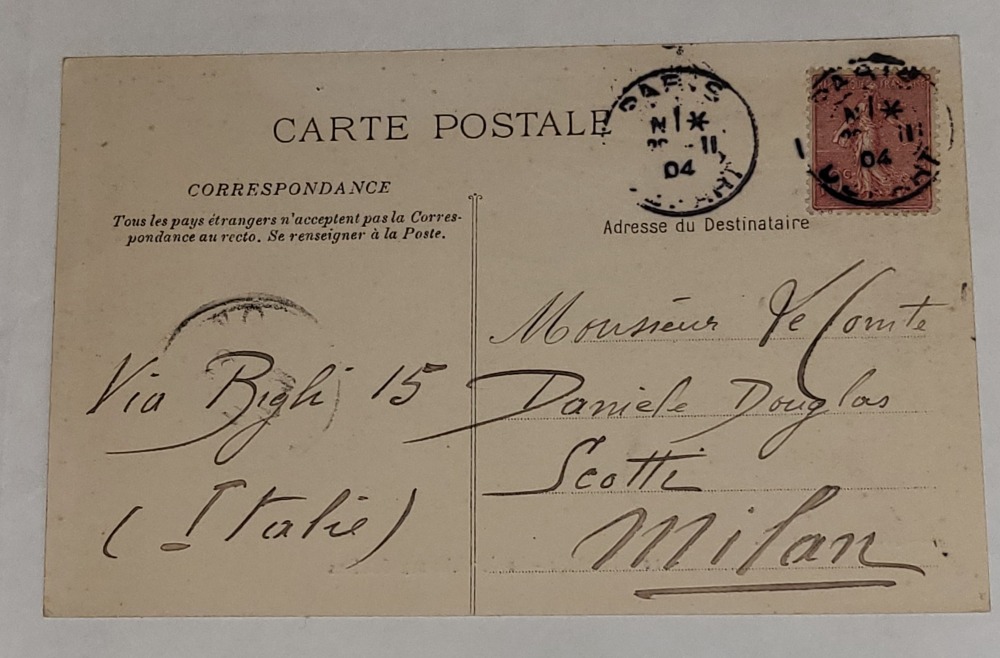 CARTE POSTALE
CORRESPONDANCE
Tous les pays étrangers n'acceptent pas la Corres-
pondance au recto. Se renseigner à la Poste.
Adresse du Destinataire
PARIS
11
04
PARIS
11
04
Monsieur Le Comte
Daniele Douglas
Scotti
Milan
Via Bigli 15
(Italie)